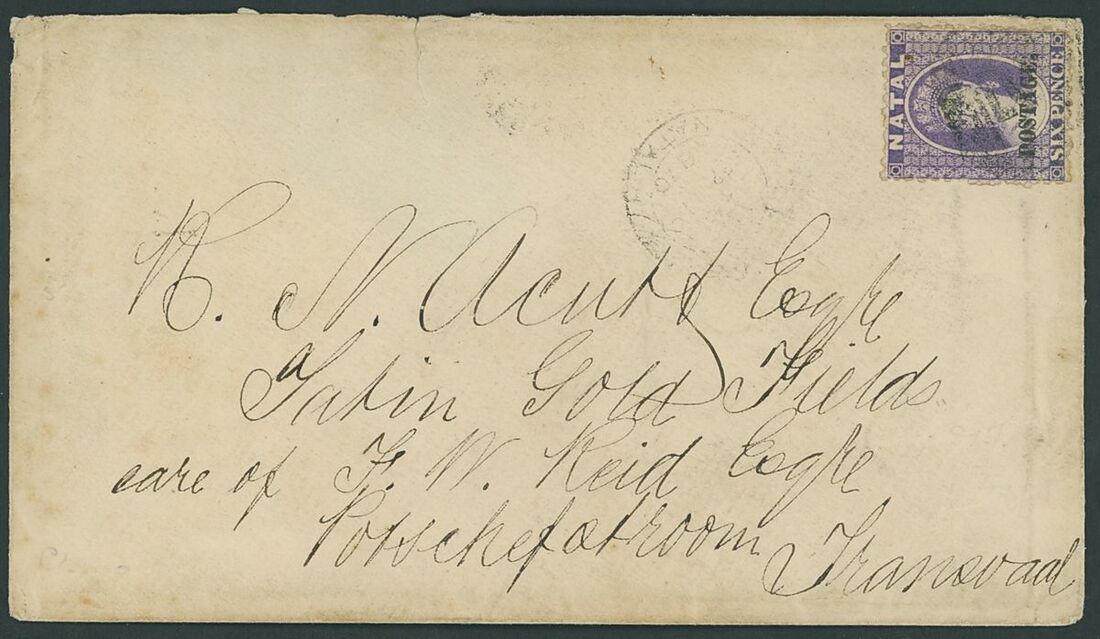 NATAL
POSTAGE.
SIX PENCE
R. N. Acutt Esqre
Tatin Gold Fields
care of F. W. Reid Esqre
Potschefstroom Transvaal